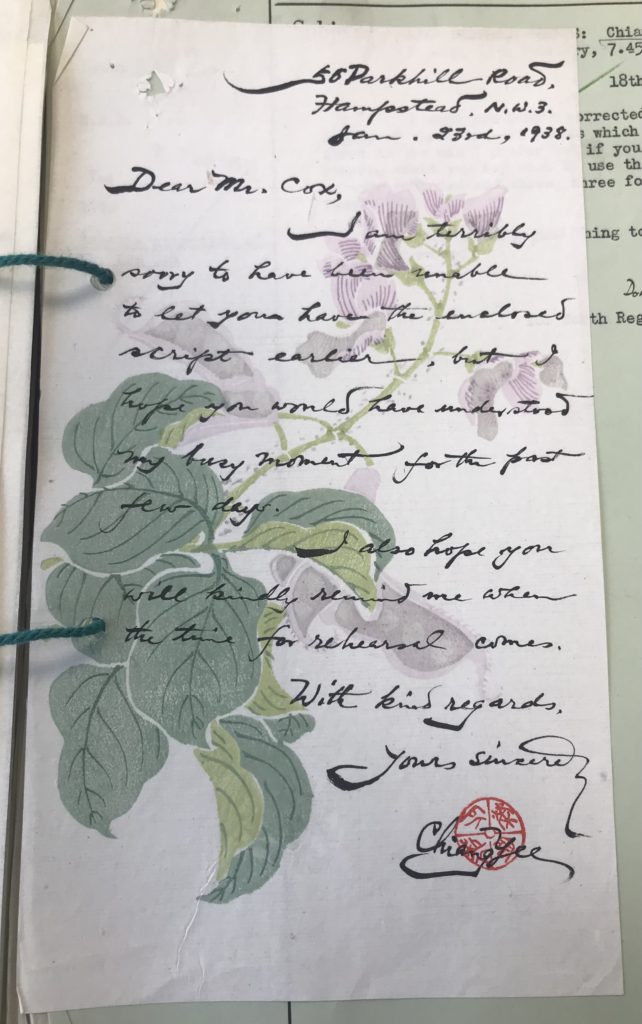 S: Chia
ry, 7.45
18th
orrected
s which
if you
use th
hree fo
ning to
th Reg
56 Parkhill Road,
Hampstead, N.W.3.
Jan. 23rd, 1938.
Dear Mr. Cox,
I am terribly
sorry to have been unable
to let you have the enclosed
script earlier, but I
hope you would have understood
my busy moment for the past
few days.
I also hope you
will kindly remind me when
the time for rehearsal comes.
With kind regards,
Yours sincerely
Chiang Yee